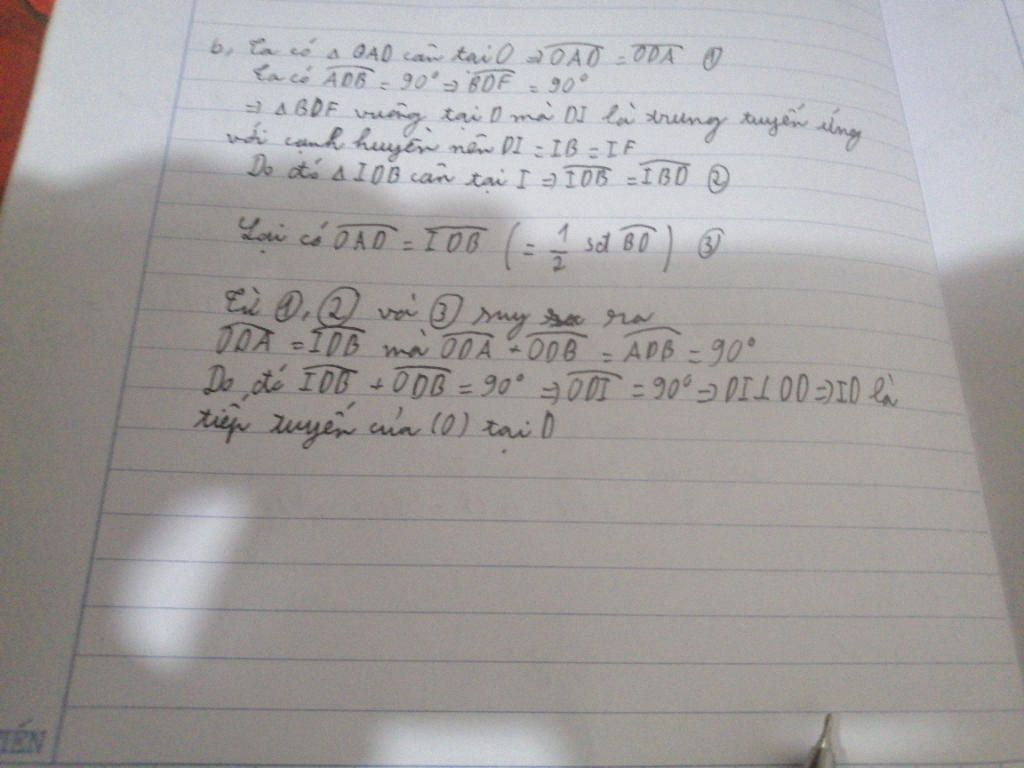 b, Ta có △ OAD cân tại O ⇒ \widehat{OAD} = \widehat{ODA} ①
Ta có \widehat{ADB} = 90° ⇒ \widehat{BDF} = 90°
⇒ △ BDF vuông tại D mà DI là trung tuyến ứng
với cạnh huyền nên DI = IB = IF
Do đó △ IDB cân tại I ⇒ \widehat{IDB} = \widehat{IBD} ②
Lại có \widehat{OAD} = \widehat{IDB} (= \frac{1}{2} sđ \widehat{BD}) ③
Từ ①, ② và ③ suy ra
\widehat{ODA} = \widehat{IDB} mà \widehat{ODA} + \widehat{ODB} = \widehat{ADB} = 90°
Do đó \widehat{IDB} + \widehat{ODB} = 90° ⇒ \widehat{ODI} = 90° ⇒ DI ⊥ OD ⇒ ID là
tiếp tuyến của (O) tại D
TIẾN